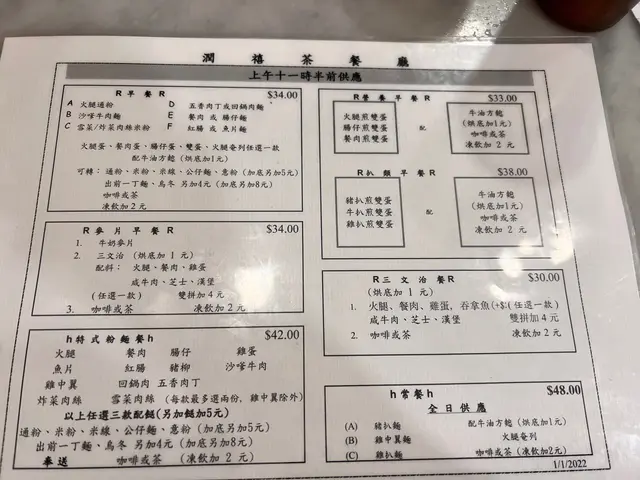 潤禧茶餐廳
上午十一時半前供應
R早餐R $34.00
A 火腿通粉 D 五香肉丁或回鍋肉麵
B 沙嗲牛肉麵 E 餐肉 或 腸仔麵
C 雪菜/炸菜肉絲米粉 F 紅腸 或 魚片麵
火腿蛋、餐肉蛋、腸仔蛋、雙蛋、火腿奄列任選一款
配牛油方飽 (烘底加1元)
可轉: 通粉、米粉、米線、公仔麵、意粉 (加底另加5元)
出前一丁麵、烏冬 另加4元 (加底另加8元)
咖啡或茶
凍飲加 2 元
R麥片早餐R $34.00
1. 牛奶麥片
2. 三文治 (烘底加 1 元)
配料: 火腿、餐肉、雞蛋
咸牛肉、芝士、漢堡
(任選一款) 雙拼加 4 元
3. 咖啡或茶 凍飲加 2 元
h特式粉麵餐h $42.00
火腿 餐肉 腸仔 雞蛋
魚片 紅腸 豬柳 沙嗲牛肉
雞中翼 回鍋肉 五香肉丁
炸菜肉絲 雪菜肉絲 (每款最多選兩份, 雞中翼除外)
以上任選三款配餸(另加餸加5元)
通粉、米粉、米線、公仔麵、意粉 (加底另加5元)
出前一丁麵、烏冬 另加4元 (加底另加8元)
奉送 咖啡或茶 (凍飲加 2 元)
R營養早餐R $33.00
火腿煎雙蛋
腸仔煎雙蛋
餐肉煎雙蛋
配
牛油方飽
(烘底加1元)
咖啡或茶
凍飲加 2 元
R扒類早餐R $38.00
豬扒煎雙蛋
牛扒煎雙蛋
雞扒煎雙蛋
配
牛油方飽
(烘底加1元)
咖啡或茶
凍飲加 2 元
R三文治餐R $30.00
(烘底加 1 元)
1. 火腿、餐肉、雞蛋, 吞拿魚(任選一款)
咸牛肉、芝士、漢堡 雙拼加 4 元
2. 咖啡或茶 凍飲加 2 元
h常餐h $48.00
全日供應
(A) 豬扒麵 配牛油方飽 (烘底加1元)
(B) 雞中翼麵 火腿奄列
(C) 雞扒麵 咖啡或茶 (凍飲加2元)
1/1/2022